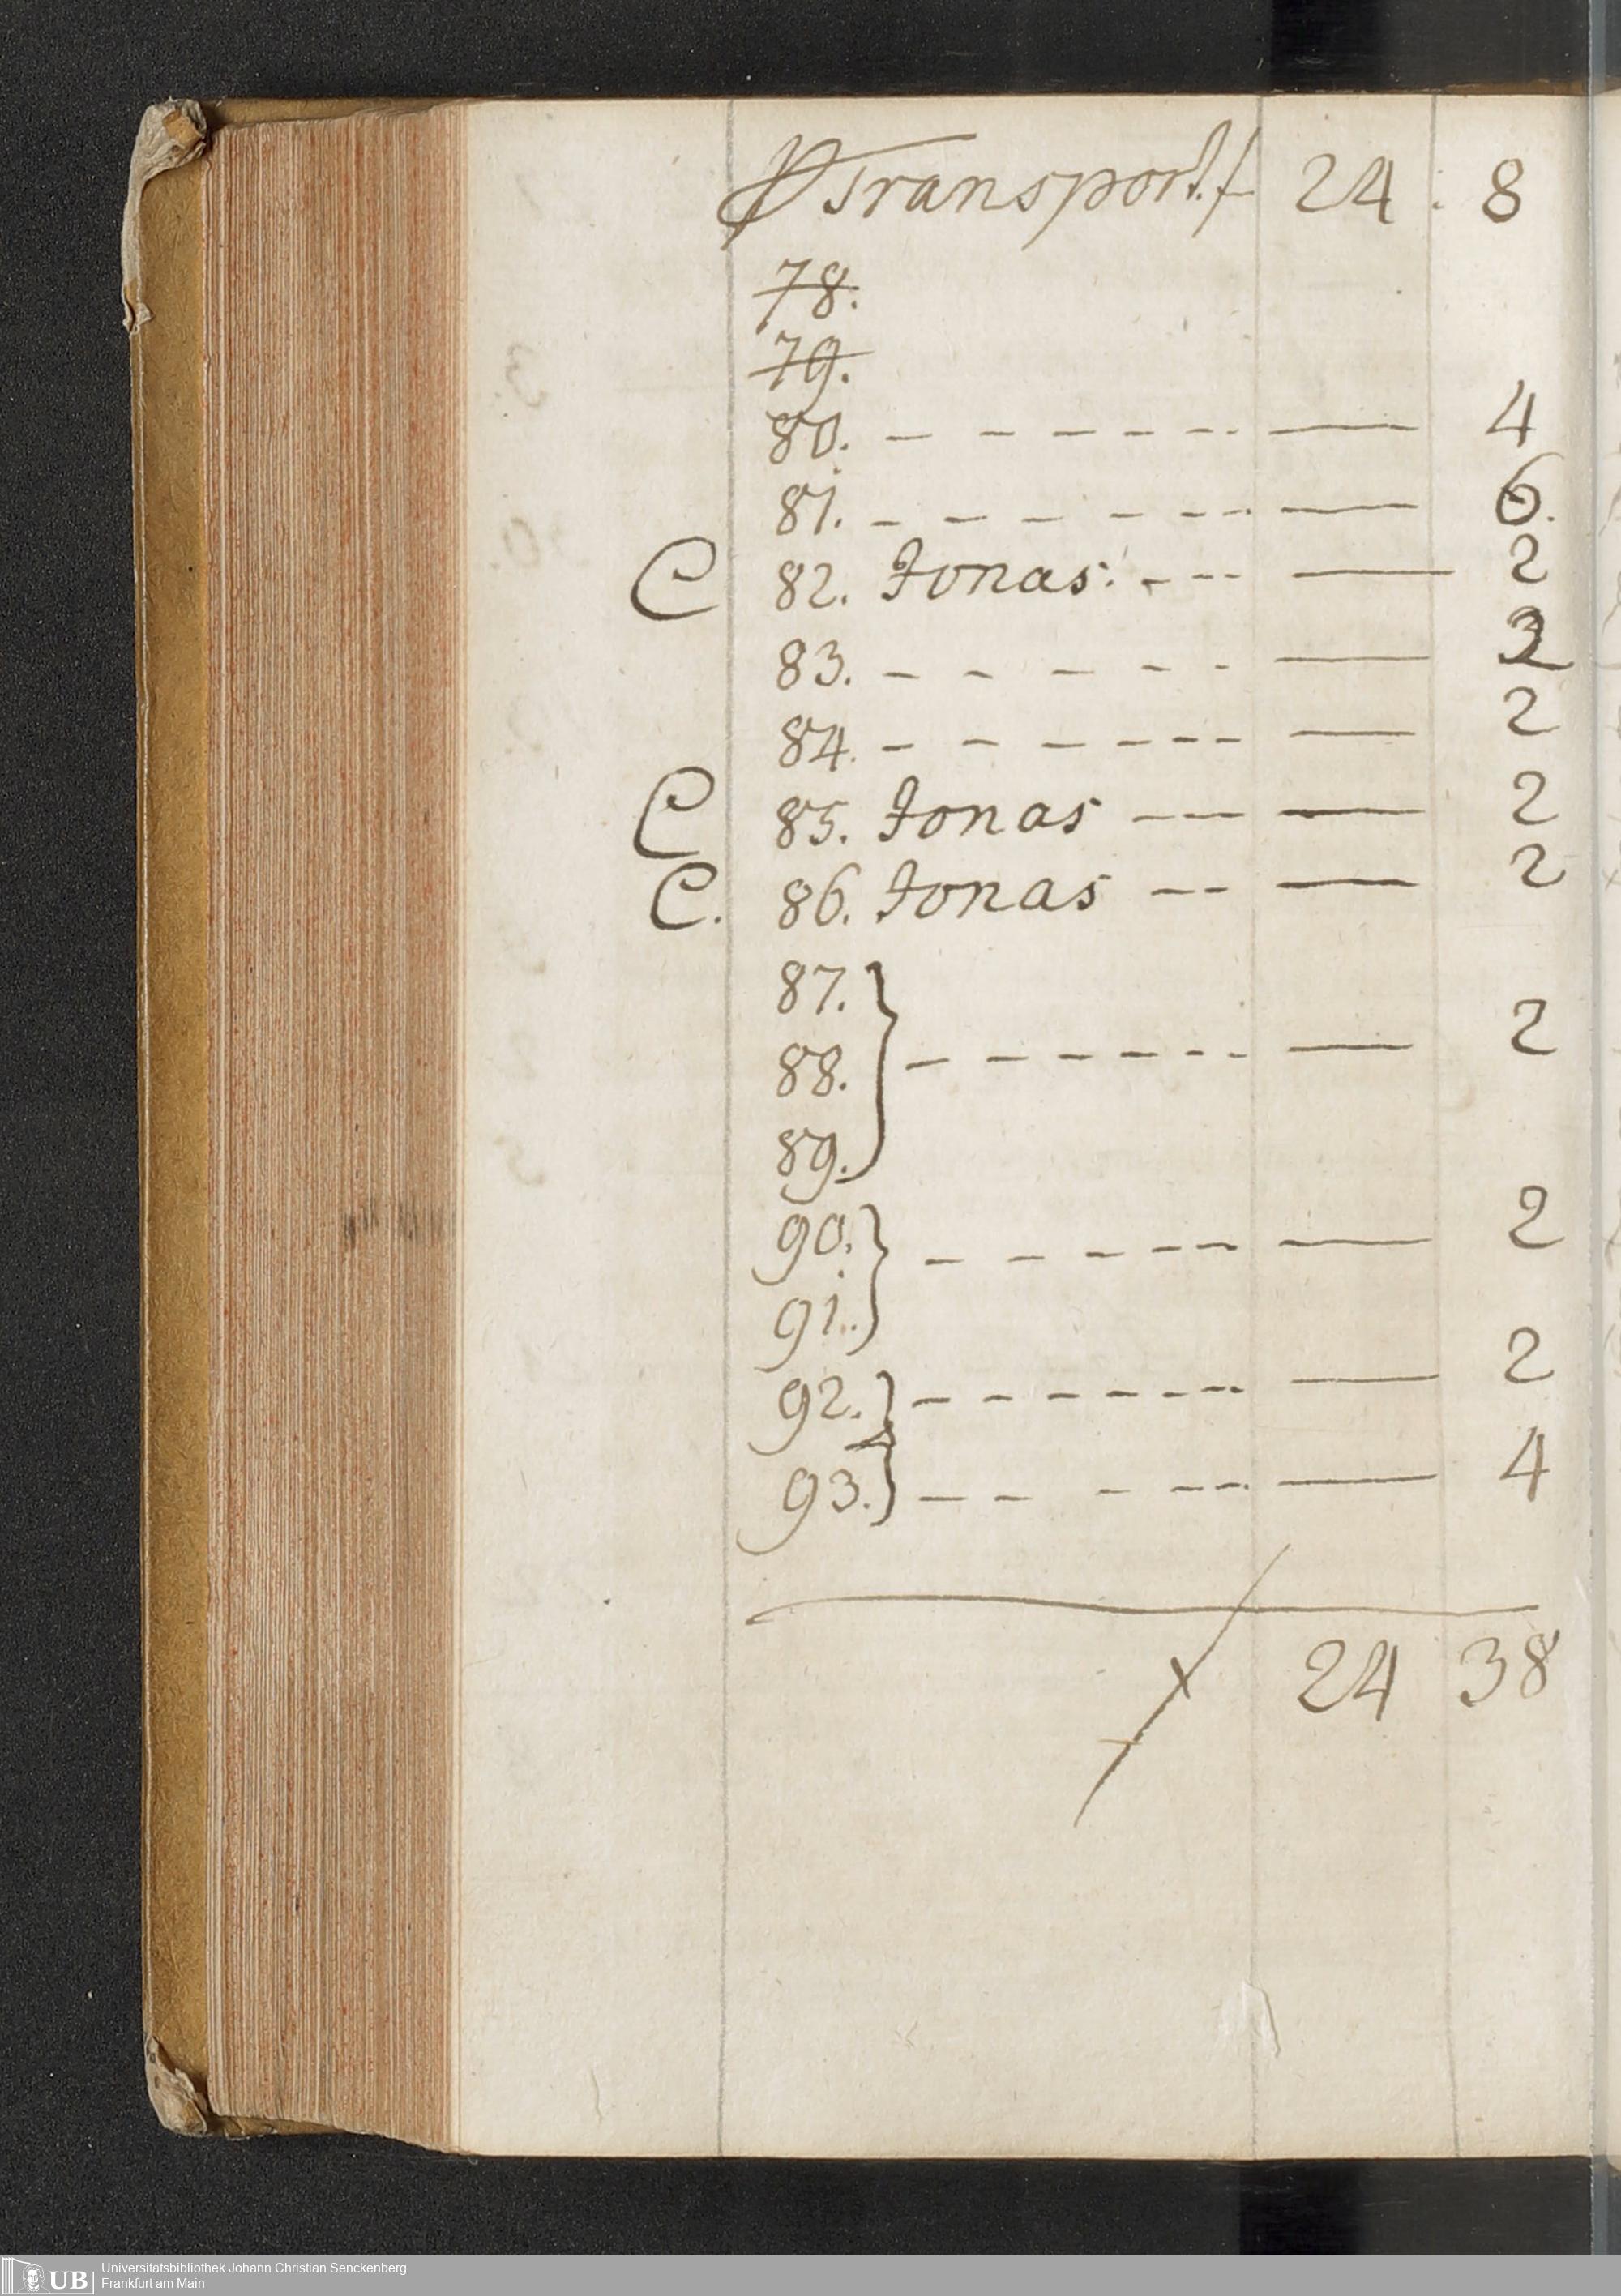 Transport f 24 : 8
78.
79.
80. - - - - - - — 4
81. - - - - - - — 6.
C 82. Jonas. - - - — 2
83. - - - - - — 2
84. - - - - - - — 2
C 85. Jonas - - - — 2
C. 86. Jonas - - — 2
87.
88. } - - - - - - — 2
89.
90. } - - - - - - — 2
91.
92. } - - - - - - — 2
93. } - - - - - — 4
f 24 38
UB Universitätsbibliothek Johann Christian Senckenberg
Frankfurt am Main